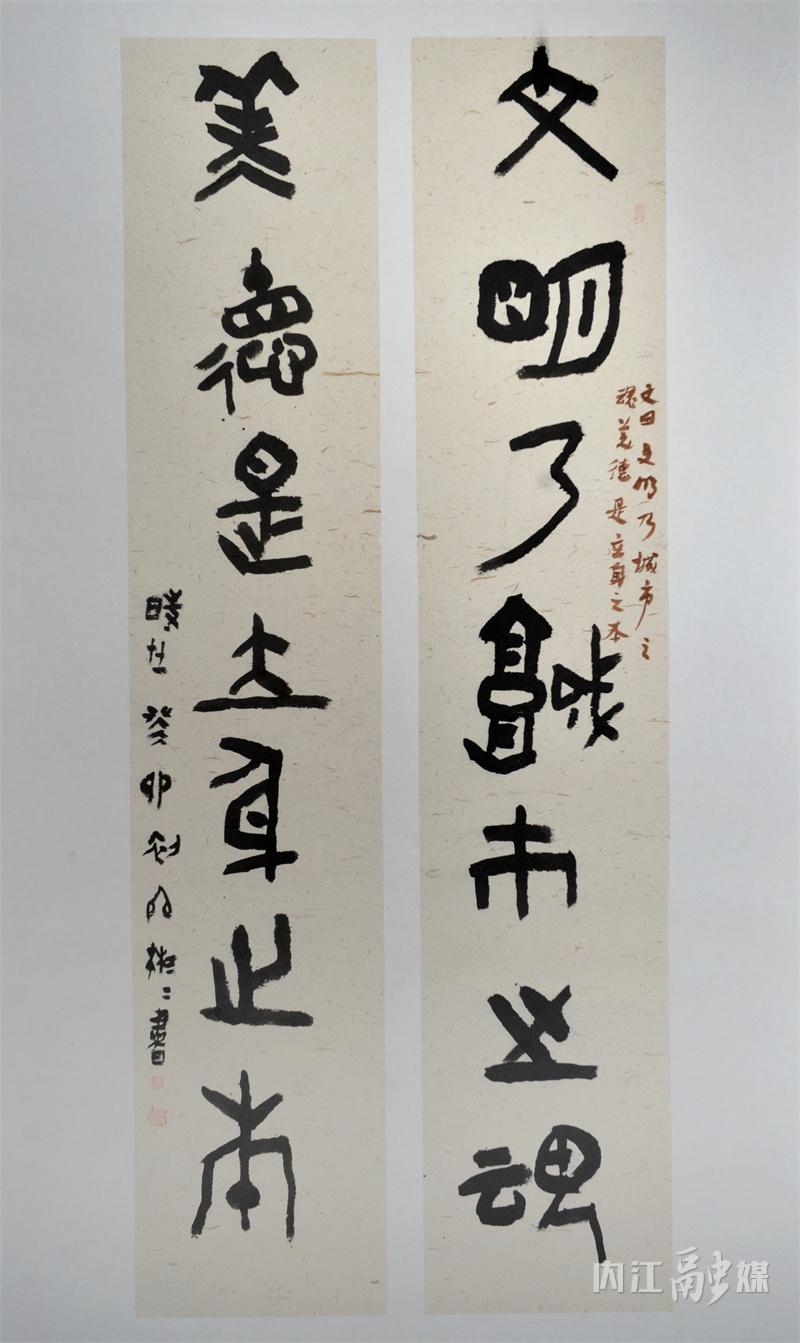 文明乃城市之魂
文曰文明乃城市之
魂美德是立身之本
美德是立身之本
癸卯
書
内江融媒